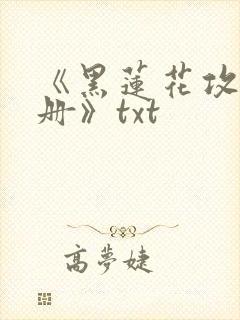 《黑蓮花攻
册》txt
高夢婕